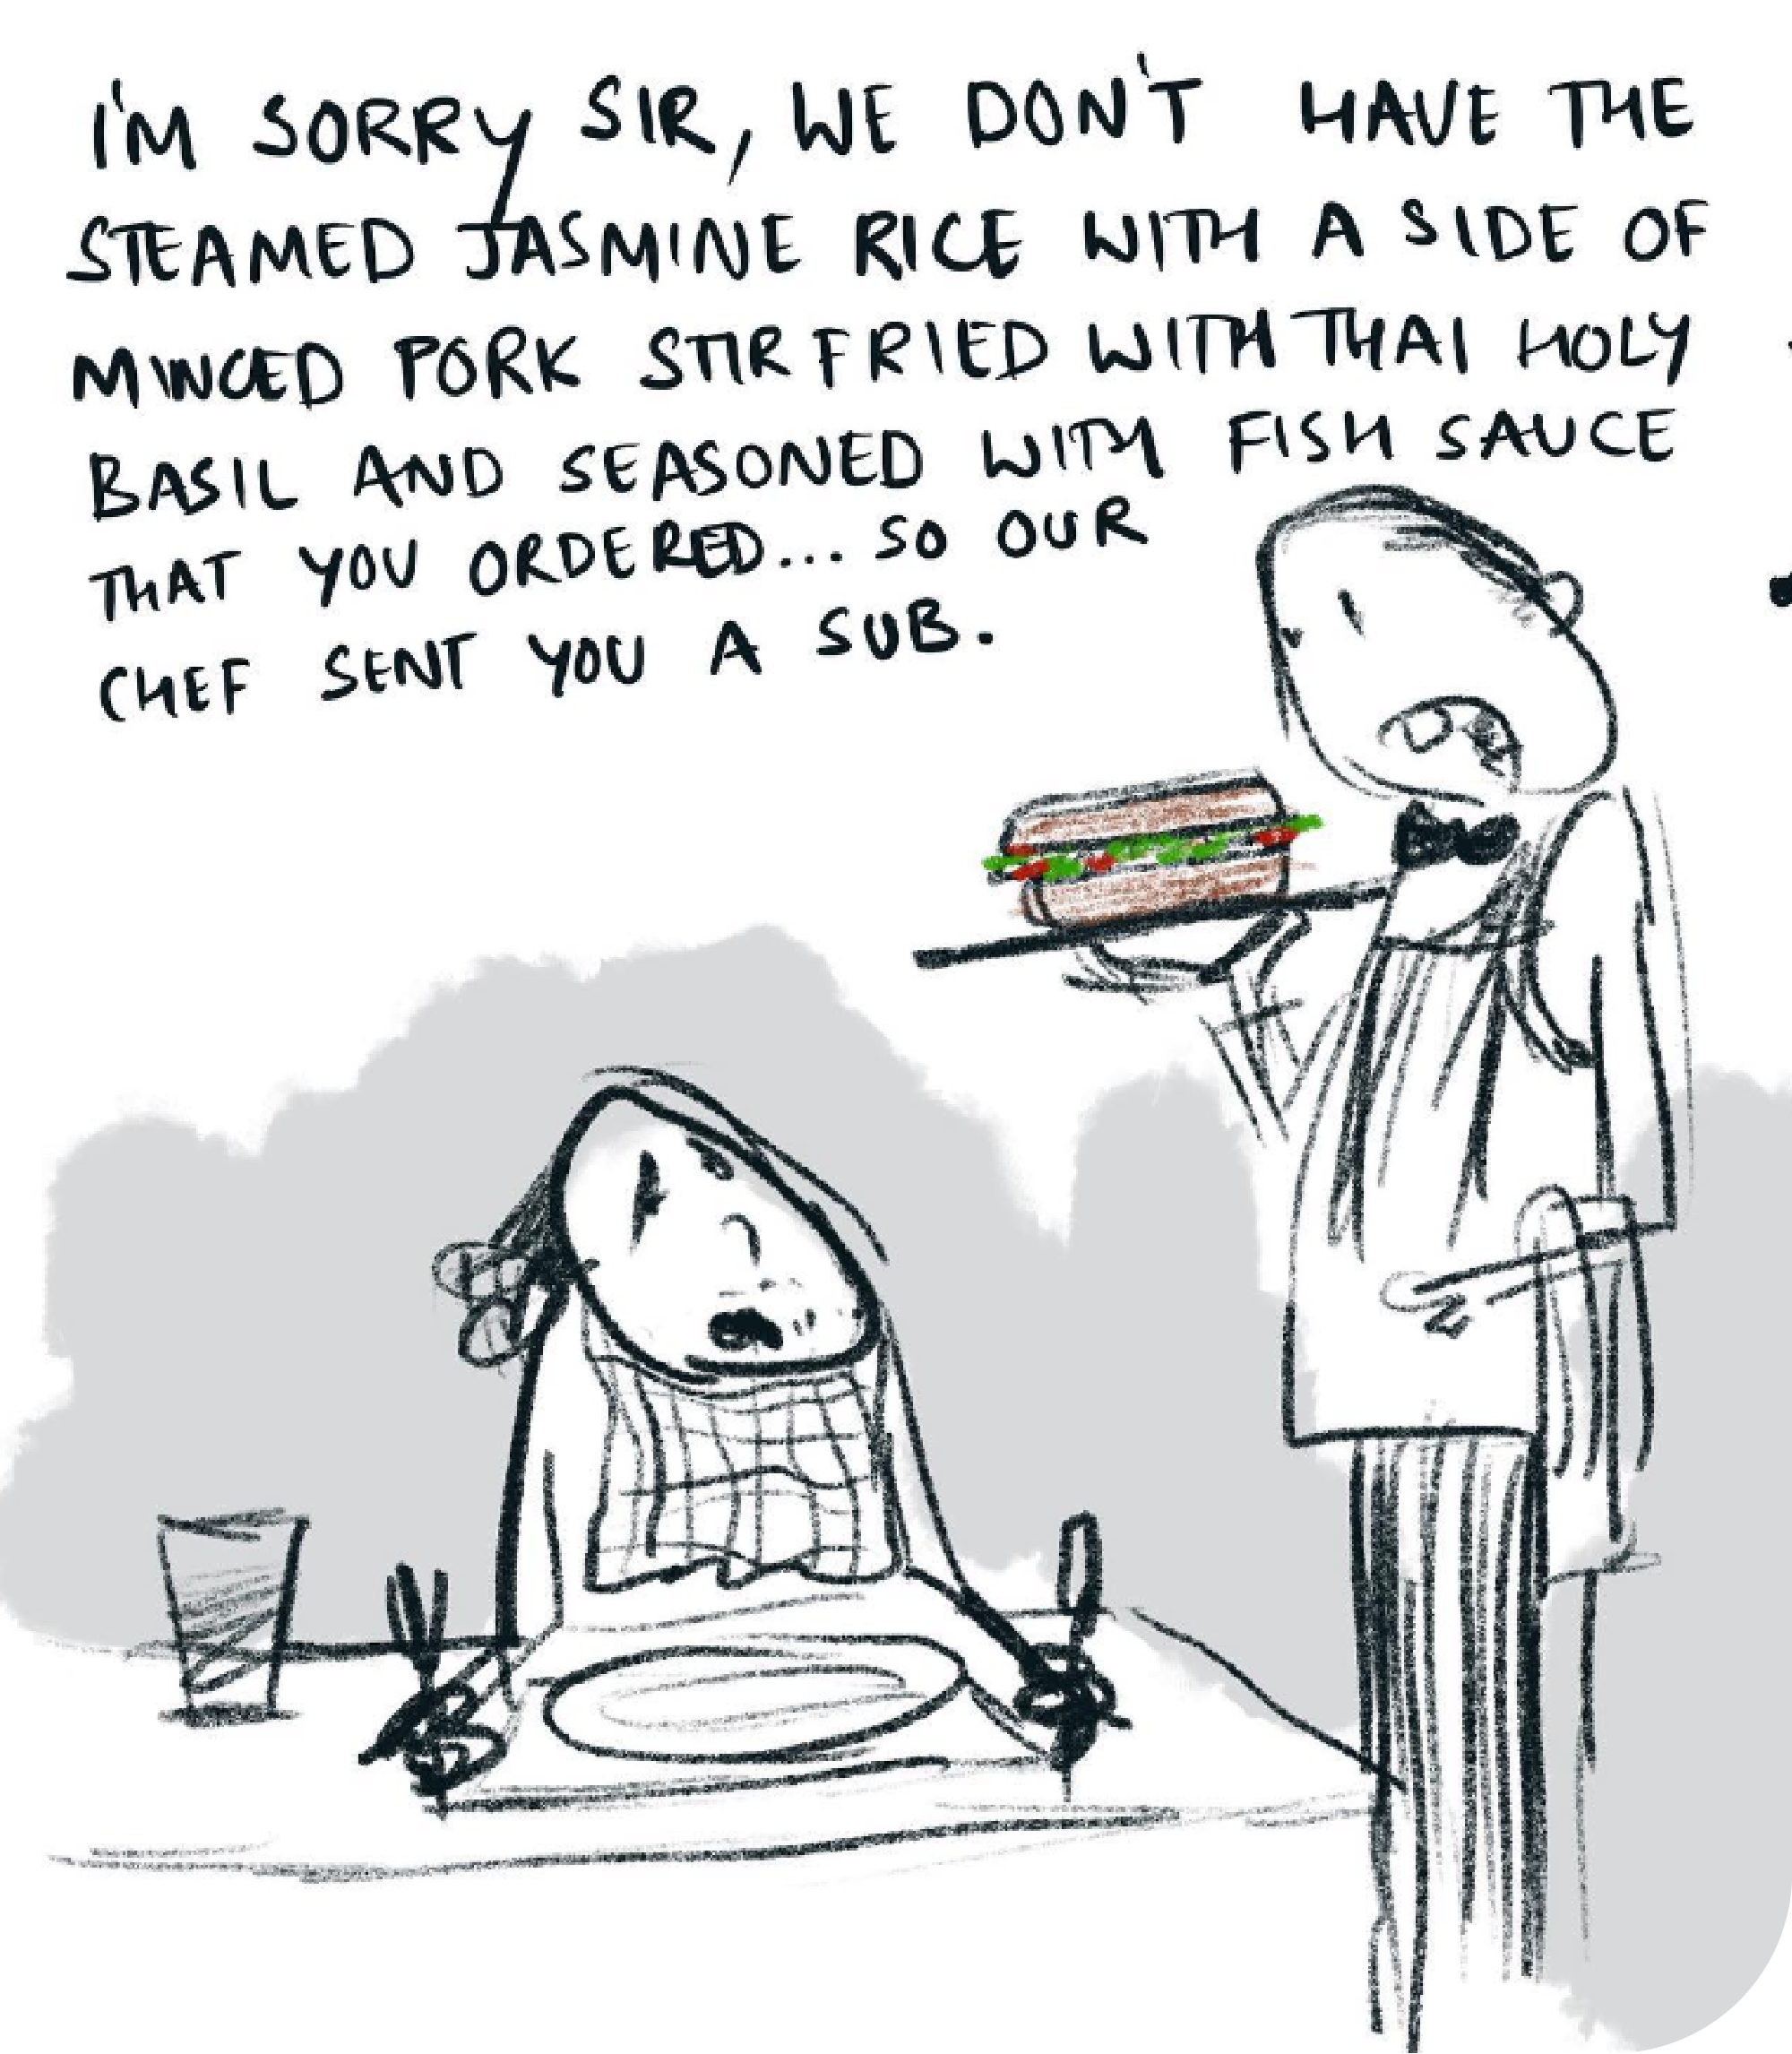 I'M SORRY SIR, WE DON'T HAVE THE
STEAMED JASMINE RICE WITH A SIDE OF
MINCED PORK STIR FRIED WITH THAI HOLY
BASIL AND SEASONED WITH FISH SAUCE
THAT YOU ORDERED... SO OUR
CHEF SENT YOU A SUB.